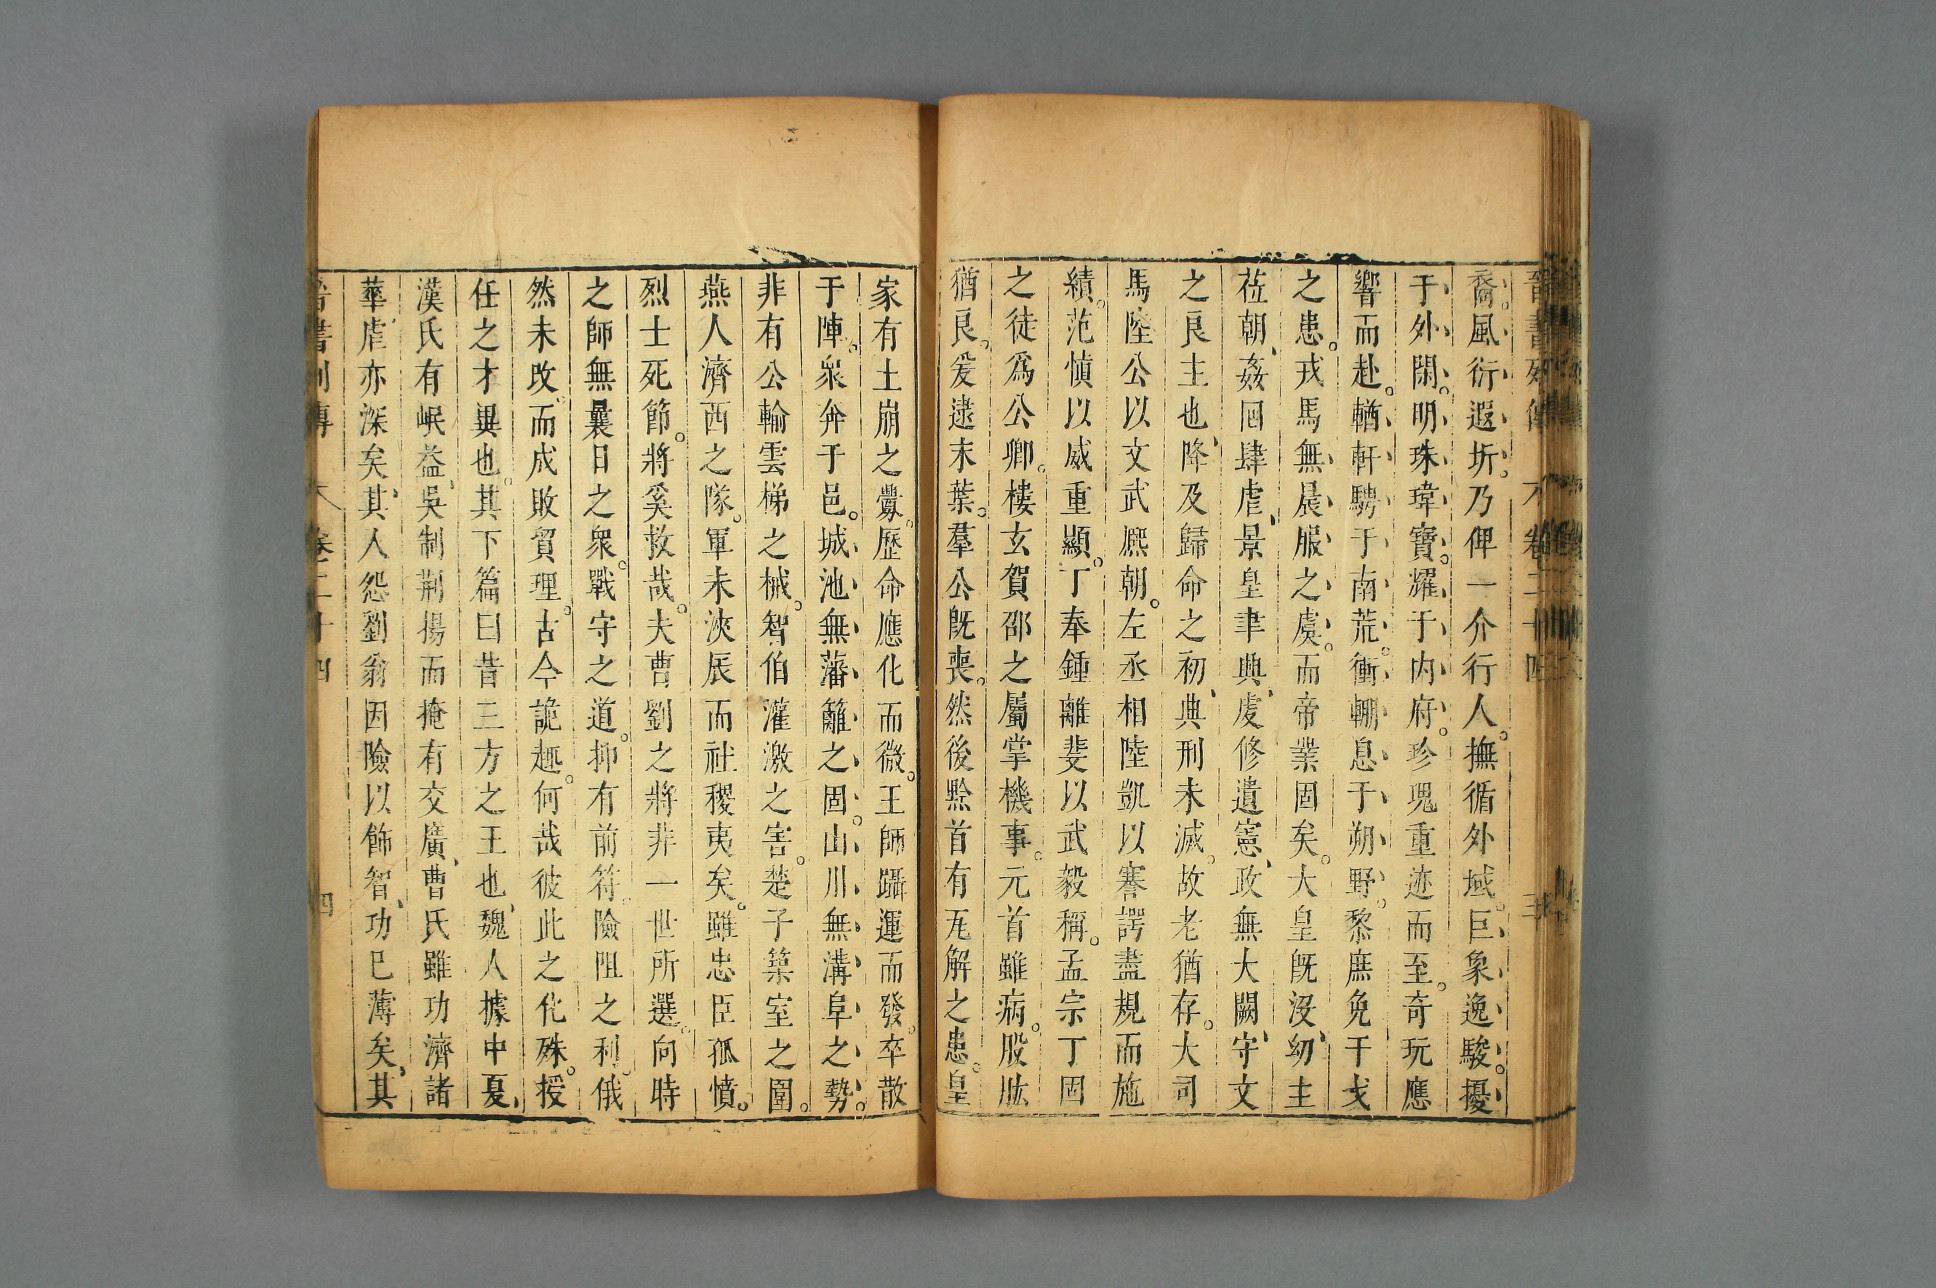 晉書列傳 卷二十四 三
裔。風衍遐圻。乃俾一介行人。撫循外域。巨象逸駿。擾
于外閑。明珠瑋寶。耀于内府。珍瑰重迹而至。奇玩應
響而赴。輶軒騁于南荒。衝輣息于朔野。黎庶免干戈
之患。戎馬無晨服之虞。而帝業固矣。大皇旣沒、幼主
莅朝、姦回肆虐、景皇聿興、虔修遺憲、政無大闕、守文
之良主也、降及歸命之初、典刑未滅。故老猶存。大司
馬陸公以文武熈朝。左丞相陸凱以謇諤盡規而施
績。范愼以威重顯。丁奉鍾離斐以武毅稱。孟宗丁固
之徒爲公卿。樓玄賀邵之屬掌機事。元首雖病。股肱
猶良。爰逮末葉。羣公旣喪。然後黔首有瓦解之患。皇
家有土崩之釁。歷命應化而微。王師躡運而發。卒散
于陣。衆奔于邑。城池無藩籬之固。山川無溝阜之勢。
非有公輸雲梯之械。智伯灌激之害。楚子築室之圍。
燕人濟西之隊。軍未浹辰而社稷夷矣。雖忠臣孤憤。
烈士死節。將奚救哉。夫曹劉之將非一世所選。向時
之師無曩日之衆。戰守之道。抑有前符。險阻之利。俄
然未改。而成敗貿理。古今詭趣。何哉彼此之化殊。授
任之才異也。其下篇曰昔三方之王也、魏人據中夏、
漢氏有岷益、吳制荆揚而掩有交廣、曹氏雖功濟諸
華、虐亦深矣、其人怨劉翁因險以飾智、功已薄矣、其
晉書列傳 卷二十四 四